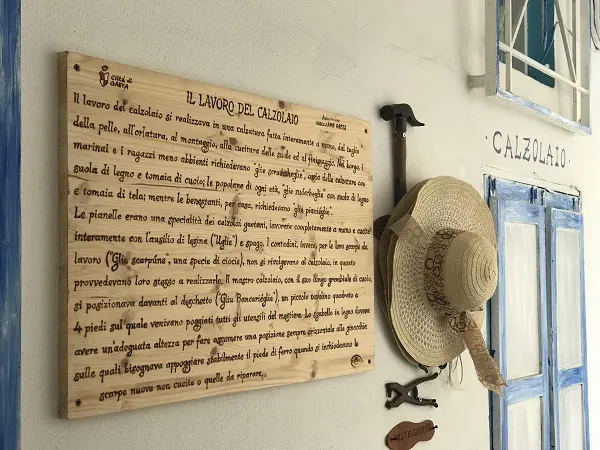 Città di
GAETA
IL LAVORO DEL CALZOLAIO
Il lavoro del calzolaio si realizzava in una calzatura fatta interamente a mano, dal taglio
della pelle, all'orlatura, al montaggio, alla cucitura delle suole ed al finissaggio. Nel borgo, i
marinai e i ragazzi meno abbienti richiedevano "glie scruócheglie", ossia delle calzature con
suola di legno e tomaia di cuoio; le popolane di ogni età, "glie zuócheglie", con suola di legno
e tomaia di tela; mentre le benestanti, per casa, richiedevano "glie pianiéglie".
Le pianelle erano una specialità dei calzolai gaetani, lavorate completamente a mano e cucite
interamente con l'ausilio di lesina ("Uglie") e spago. I contadini, per le loro scarpe da
lavoro ("Glie scarpine", una specie di ciocie), non si rivolgevano al calzolaio, in quanto
provvedevano loro stesso a realizzarle. Il mastro calzolaio, con il suo lungo grembiule di cuoio,
si posizionava davanti al deschetto ("Gliu Bancariéglie"), un piccolo tavolino quadrato a
4 piedi sul quale venivano poggiati tutti gli utensili del mestiere. Lo sgabello in legno doveva
avere un'adeguata altezza per fare assumere una posizione sempre orizzontale alle ginocchia
sulle quali bisognava appoggiare stabilmente il piede di ferro quando si inchiodavano le
scarpe nuove non cucite o quelle da riparare.
CALZOLAIO